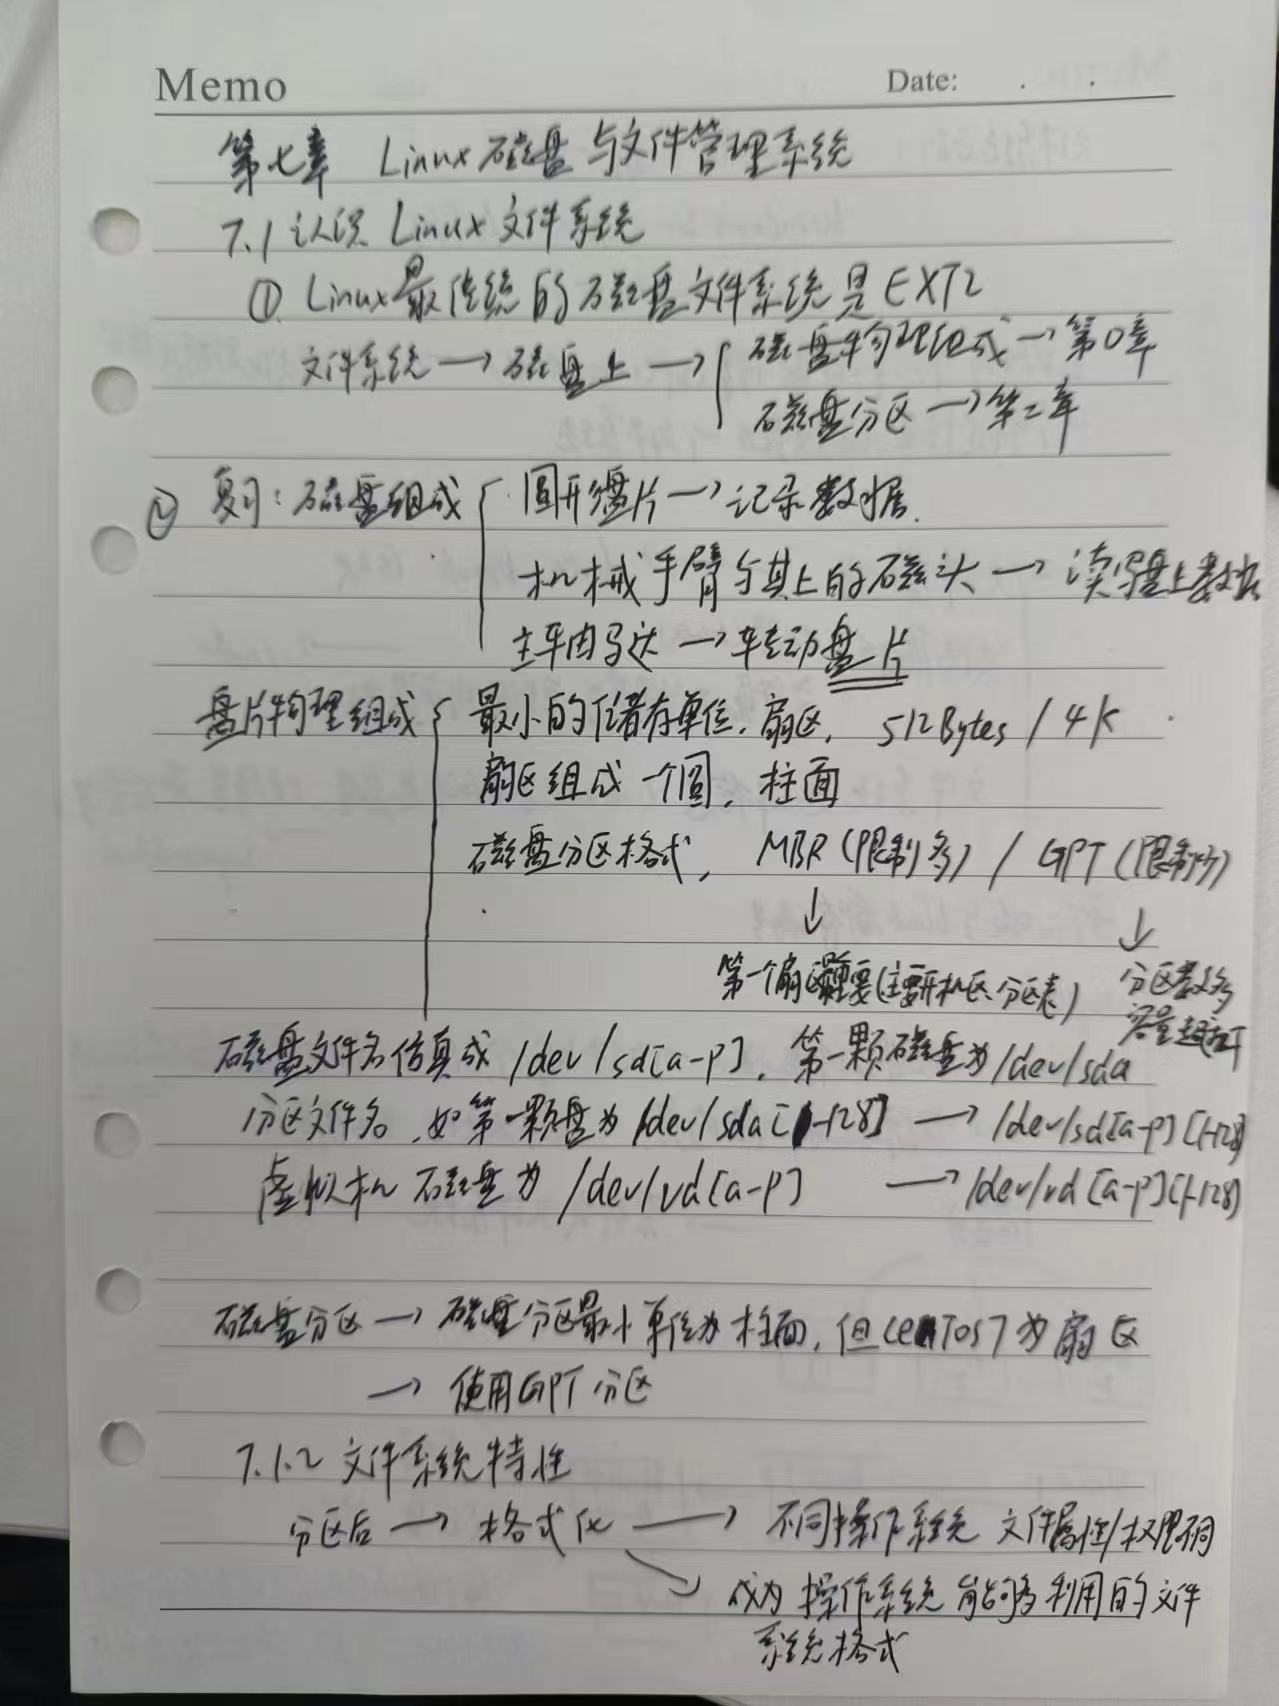 Memo Date: . .
第七章 Linux磁盘与文件管理系统
7.1 认识 Linux 文件系统
① Linux最传统的磁盘文件系统是EXT2
文件系统 → 磁盘上 → { 磁盘物理组成 → 第0章
磁盘分区 → 第二章
② 复习: 磁盘组成 { 圆形盘片 → 记录数据.
机械手臂与其上的磁头 → 读写盘上数据
主轴马达 → 转动盘片
盘片物理组成 { 最小的储存单位. 扇区, 512Bytes / 4K
扇区组成一个圆, 柱面
磁盘分区格式, MBR (限制多) / GPT (限制少)
↓ ↓
第一个扇区重要(主要开机区、分区表) 分区数多
容量超
磁盘文件名仿真成 /dev/sd[a-p], 第一颗磁盘为/dev/sda
分区文件名, 如第一颗盘为 /dev/sda[1-128] → /dev/sd[a-p][1-128]
虚拟机 磁盘为 /dev/vd[a-p] → /dev/vd[a-p][1-128]
磁盘分区 → 磁盘分区最小单位为柱面, 但CentOS7为扇区
→ 使用GPT分区
7.1.2 文件系统特性
分区后 → 格式化 → 不同操作系统 文件属性/权限不同
↘ 成为 操作系统 能够利用的文件
系统格式